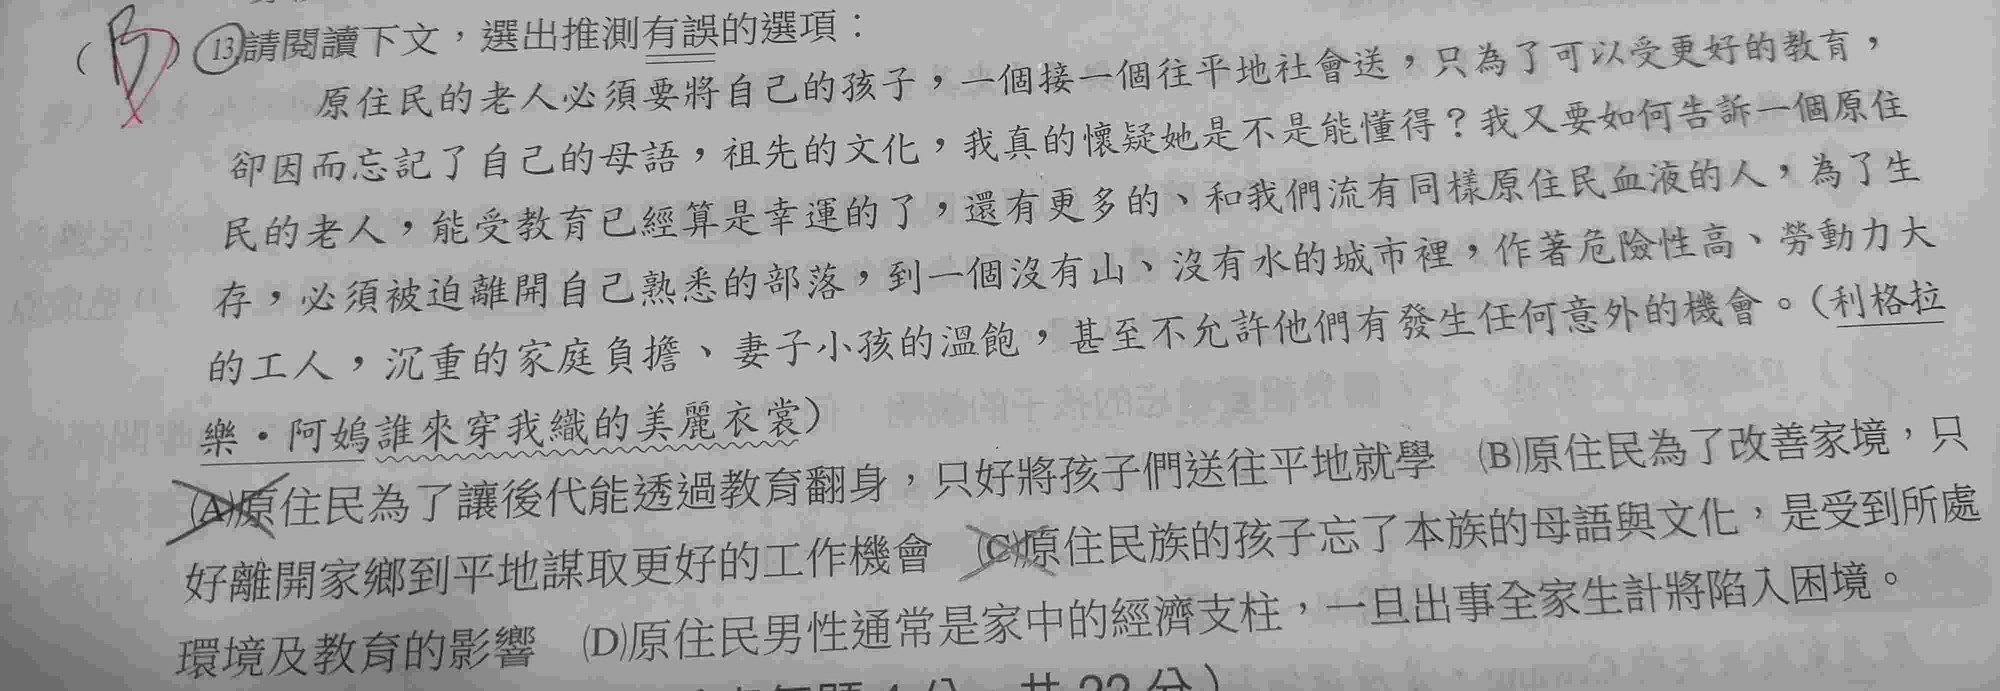 (B) 13.請閱讀下文，選出推測有誤的選項：
原住民的老人必須要將自己的孩子，一個接一個往平地社會送，只為了可以受更好的教育，
卻因而忘記了自己的母語，祖先的文化，我真的懷疑她是不是能懂得？我又要如何告訴一個原住
民的老人，能受教育已經算是幸運的了，還有更多的、和我們流有同樣原住民血液的人，為了生
存，必須被迫離開自己熟悉的部落，到一個沒有山、沒有水的城市裡，作著危險性高、勞動力大
的工人，沉重的家庭負擔、妻子小孩的溫飽，甚至不允許他們有發生任何意外的機會。（利格拉
樂·阿𡠄誰來穿我織的美麗衣裳）
(A)原住民為了讓後代能透過教育翻身，只好將孩子們送往平地就學　(B)原住民為了改善家境，只
好離開家鄉到平地謀取更好的工作機會　(C)原住民族的孩子忘了本族的母語與文化，是受到所處
環境及教育的影響　(D)原住民男性通常是家中的經濟支柱，一旦出事全家生計將陷入困境。